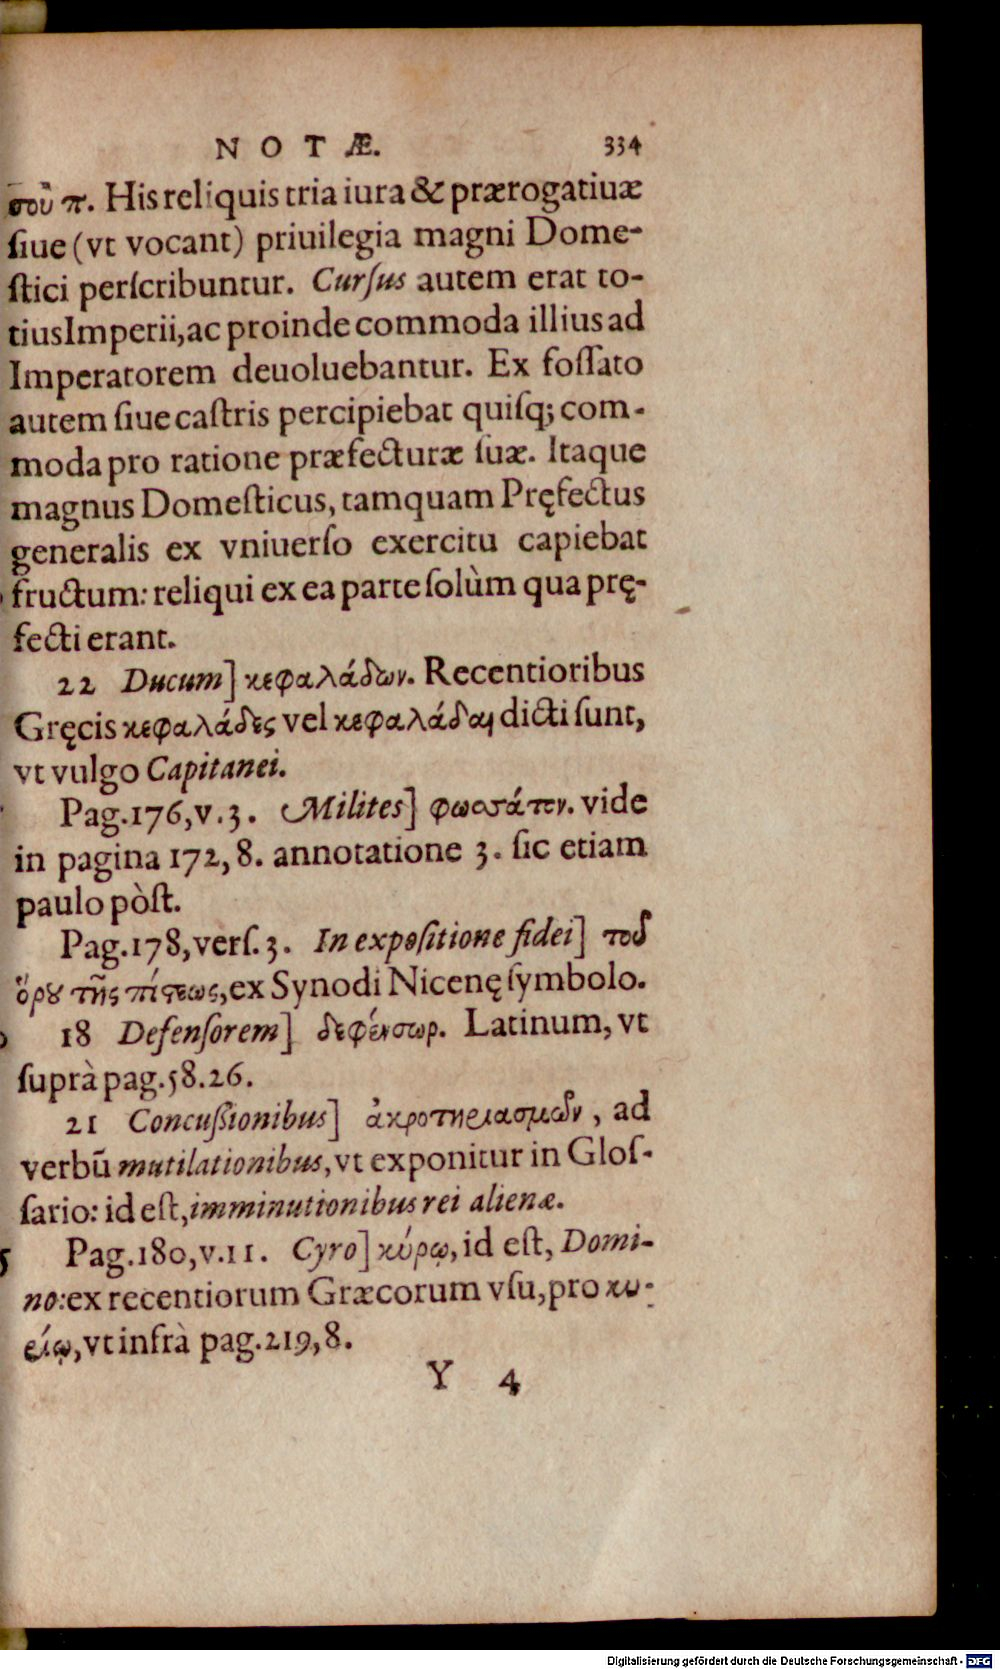 NOTÆ. 334
σου π. His reliquis tria iura & prærogatiuæ
ſiue (vt vocant) priuilegia magni Dome-
ſtici perſcribuntur. Curſus autem erat to-
tius Imperii, ac proinde commoda illius ad
Imperatorem deuoluebantur. Ex foſſato
autem ſiue caſtris percipiebat quiſq; com-
moda pro ratione præfecturæ ſuæ. Itaque
magnus Domeſticus, tamquam Pręfectus
generalis ex vniuerſo exercitu capiebat
fructum: reliqui ex ea parte ſolùm qua prę-
fecti erant.
22 Ducum] κεφαλάδων. Recentioribus
Gręcis κεφαλάδες vel κεφαλάδαι dicti ſunt,
vt vulgo Capitanei.
Pag. 176, v. 3. Milites] φωσσάτον. vide
in pagina 172, 8. annotatione 3. ſic etiam
paulo pòſt.
Pag. 178, verſ. 3. In expoſitione fidei] τοῦ
ὅρου τῆς πίστεως, ex Synodi Nicenę ſymbolo.
18 Defenſorem] δεφένσωρ. Latinum, vt
ſuprà pag. 58. 26.
21 Concuſſionibus] ἀκροτηριασμῶν, ad
verbū mutilationibus, vt exponitur in Gloſ-
ſario: id eſt, imminutionibus rei alienæ.
Pag. 180, v. 11. Cyro] κύρῳ, id eſt, Domi-
no: ex recentiorum Græcorum vſu, pro κυ-
ρίῳ, vt infrà pag. 219, 8.
Y 4
Digitalisierung gefördert durch die Deutsche Forschungsgemeinschaft - DFG